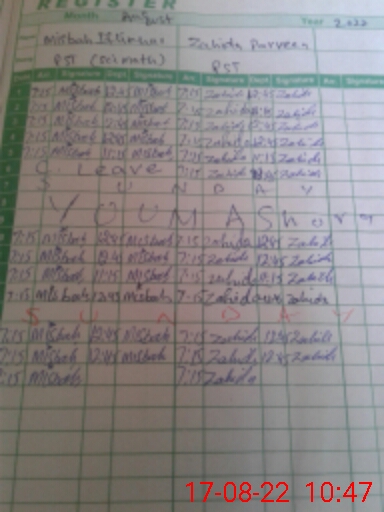 REGISTER
Month August Year 2022
Misbah Zahida Parveen
PST (Sci math) PST
Arr: Signature Dept: Signature Arr: Signature Dept: Signature
1 7:15 Misbah 12:45 Misbah 7:15 Zahida 12:45 Zahida
2 7:15 Misbah 12:45 Misbah 7:15 Zahida 12:45 Zahida
3 7:15 Misbah 12:45 Misbah 7:15 Zahida 12:45 Zahida
4 7:15 Misbah 12:45 Misbah 7:15 Zahida 12:45 Zahida
5 7:15 Misbah 11:15 Misbah 7:15 Zahida 11:15 Zahida
6 C Leave 7:15 Zahida 12:45 Zahida
7 S U N D A Y
8 Y O U M A Shora
7:15 Misbah 12:45 Misbah 7:15 Zahida 12:45 Zahida
7:15 Misbah 12:45 Misbah 7:15 Zahida 12:45 Zahida
7:15 Misbah 11:15 Misbah 7:15 Zahida 11:15 Zahida
7:15 Misbah 12:45 Misbah 7:15 Zahida Zahida
S U N D A Y
7:15 Misbah 12:45 Misbah 7:15 Zahida 12:45 Zahida
7:15 Misbah 12:45 Misbah 7:15 Zahida 12:45 Zahida
7:15 Misbah 7:15 Zahida
17-08-22 10:47